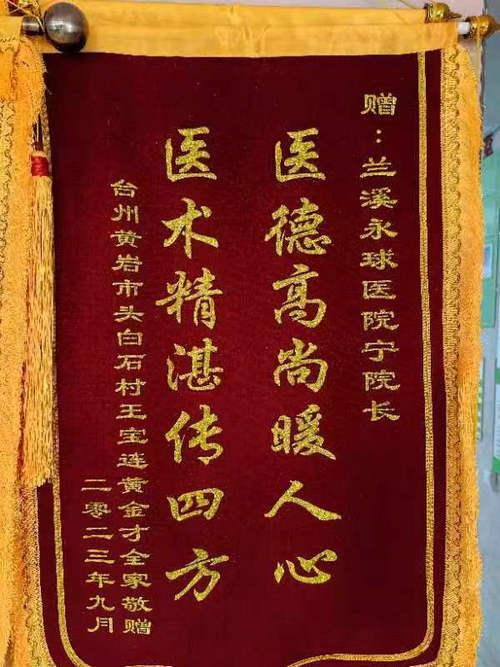 赠：兰溪永球医院宁院长
医德高尚暖人心
医术精湛传四方
台州黄岩市头白石村王宝连黄金才全家敬赠
二零二三年九月